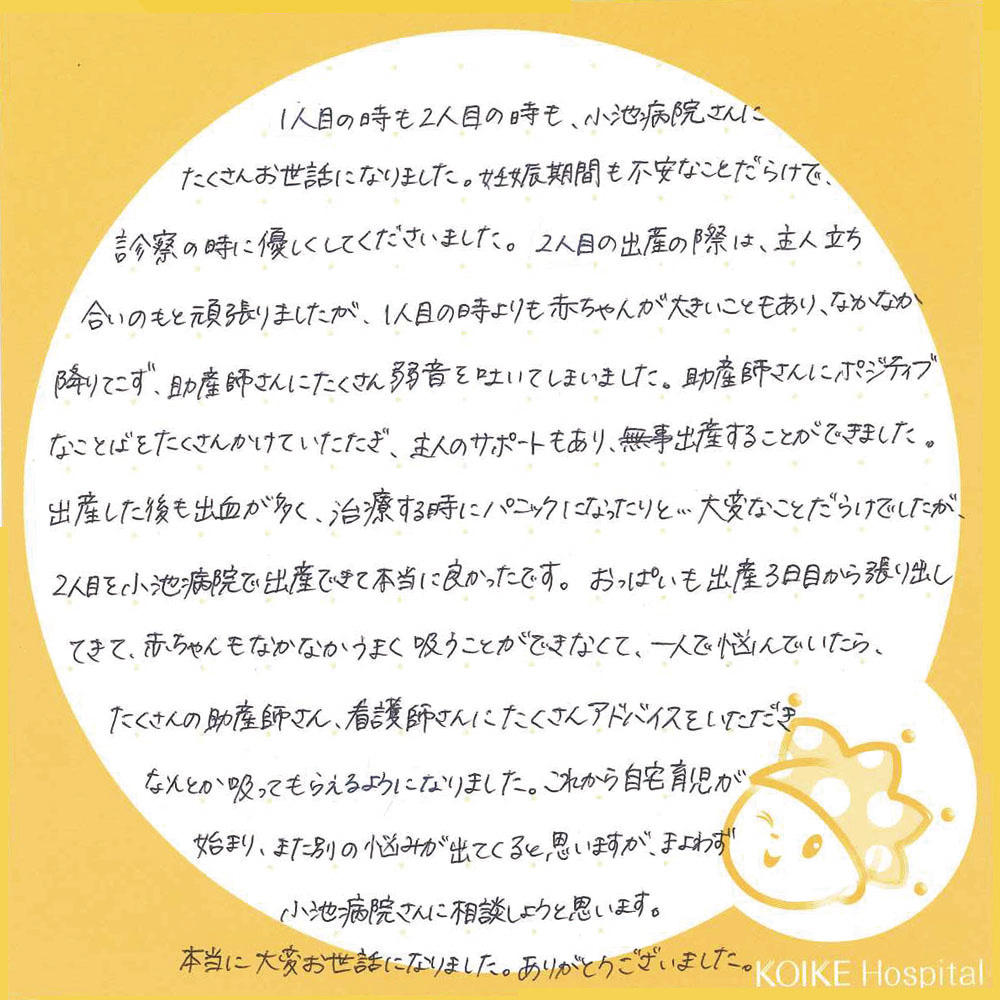 1人目の時も2人目の時も、小池病院さんに
たくさんお世話になりました。妊娠期間も不安なことだらけで、
診察の時に優しくしてくださいました。2人目の出産の際は、主人立ち
合いのもと頑張りましたが、1人目の時よりも赤ちゃんが大きいこともあり、なかなか
降りてこず、助産師さんにたくさん弱音を吐いてしまいました。助産師さんにポジティブ
なことばをたくさんかけていただき、主人のサポートもあり、無事出産することができました。
出産した後も出血が多く、治療する時にパニックになったりと…大変なことだらけでしたが、
2人目を小池病院で出産できて本当に良かったです。おっぱいも出産3日目から張り出し
てきて、赤ちゃんもなかなかうまく吸うことができなくて、一人で悩んでいたら、
たくさんの助産師さん、看護師さんにたくさんアドバイスをいただき
なんとか吸ってもらえるようになりました。これから自宅育児が
始まり、また別の悩みが出てくると思いますが、まよわず
小池病院さんに相談しようと思います。
本当に大変お世話になりました。ありがとうございました。
KOIKE Hospital